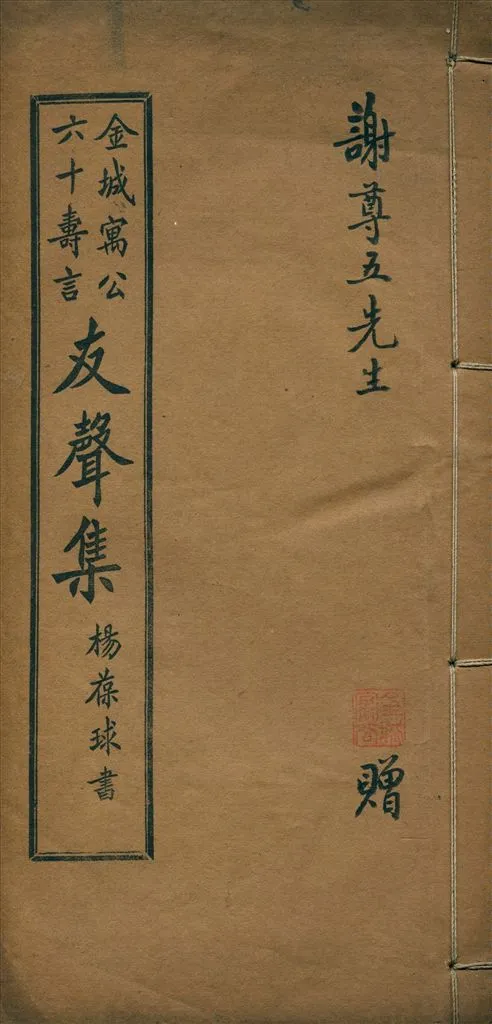 謝尊五先生
金城寓公
贈
金城寓公
六十壽言
友聲集
楊葆球書